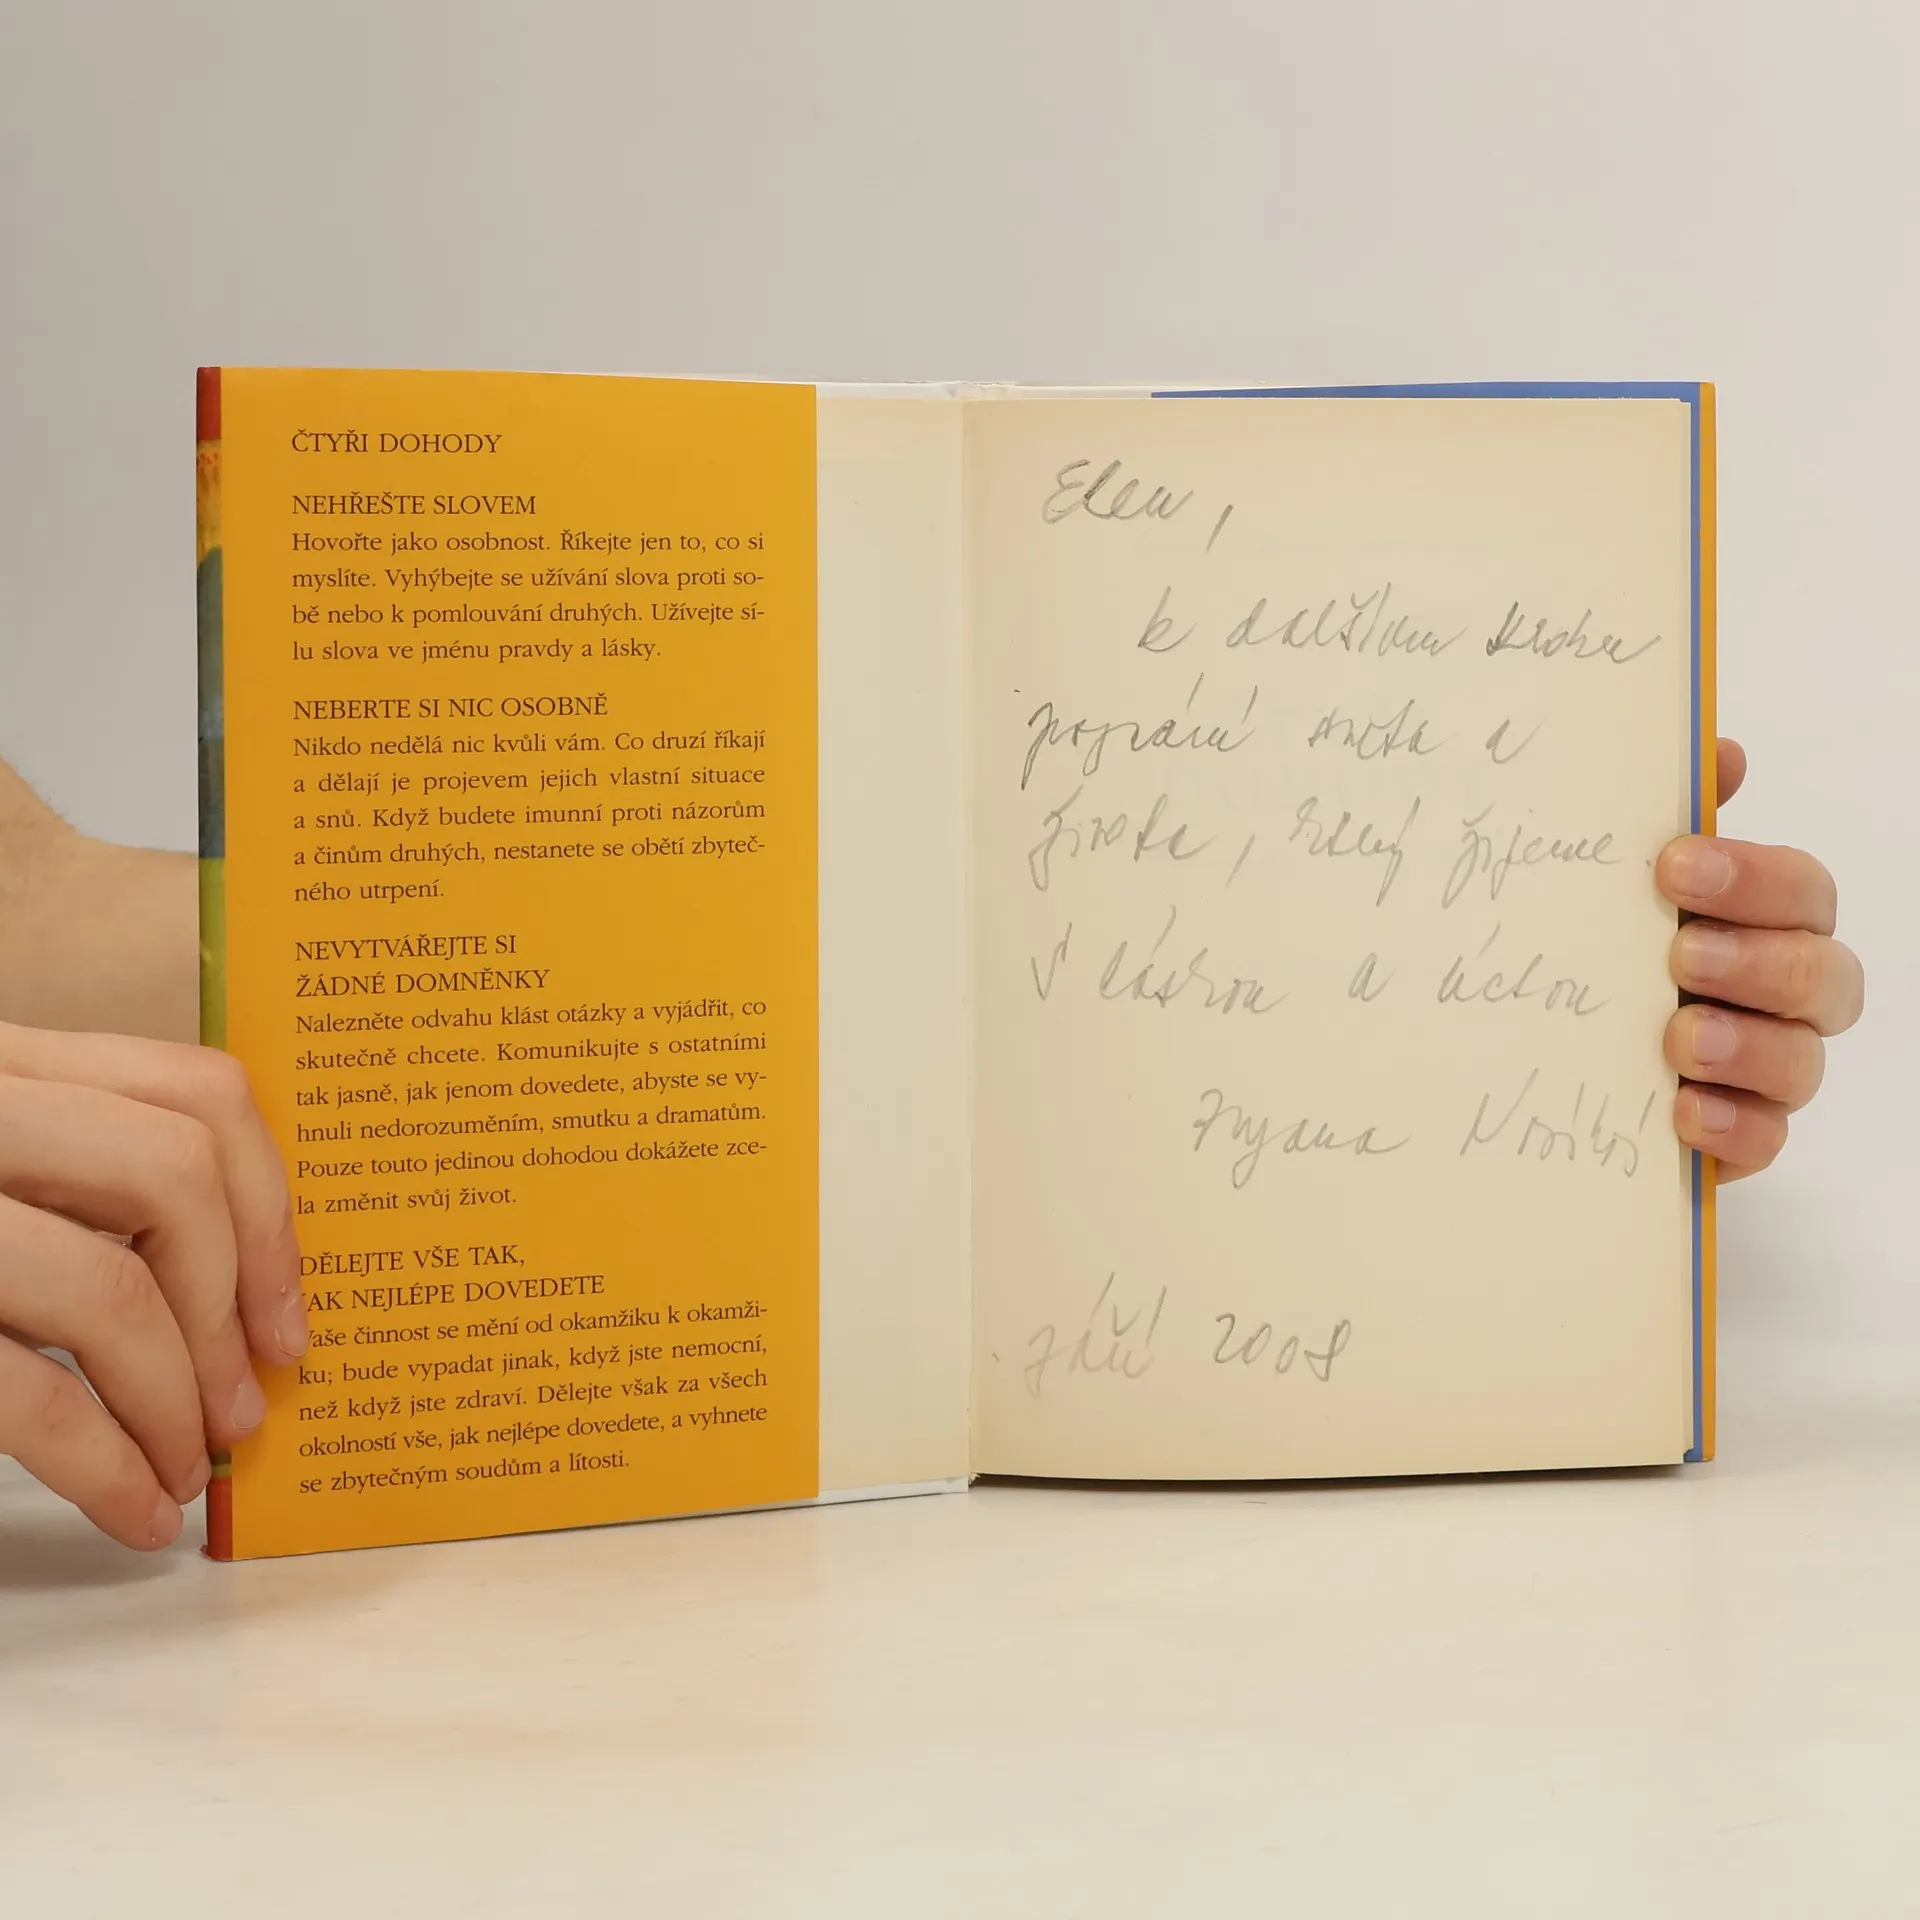 ČTYŘI DOHODY
NEHŘEŠTE SLOVEM
Hovořte jako osobnost. Říkejte jen to, co si
myslíte. Vyhýbejte se užívání slova proti so-
bě nebo k pomlouvání druhých. Užívejte sí-
lu slova ve jménu pravdy a lásky.
NEBERTE SI NIC OSOBNĚ
Nikdo nedělá nic kvůli vám. Co druzí říkají
a dělají je projevem jejich vlastní situace
a snů. Když budete imunní proti názorům
a činům druhých, nestanete se obětí zbyteč-
ného utrpení.
NEVYTVÁŘEJTE SI
ŽÁDNÉ DOMNĚNKY
Nalezněte odvahu klást otázky a vyjádřit, co
skutečně chcete. Komunikujte s ostatními
tak jasně, jak jenom dovedete, abyste se vy-
hnuli nedorozuměním, smutku a dramatům.
Pouze touto jedinou dohodou dokážete zce-
la změnit svůj život.
DĚLEJTE VŠE TAK,
JAK NEJLÉPE DOVEDETE
Vaše činnost se mění od okamžiku k okamži-
ku; bude vypadat jinak, když jste nemocní,
než když jste zdraví. Dělejte však za všech
okolností vše, jak nejlépe dovedete, a vyhnete
se zbytečným soudům a lítosti.
Elen,
k dalšímu kroku
poznání světa a
života, který žijeme.
S láskou a úctou
Září 2008